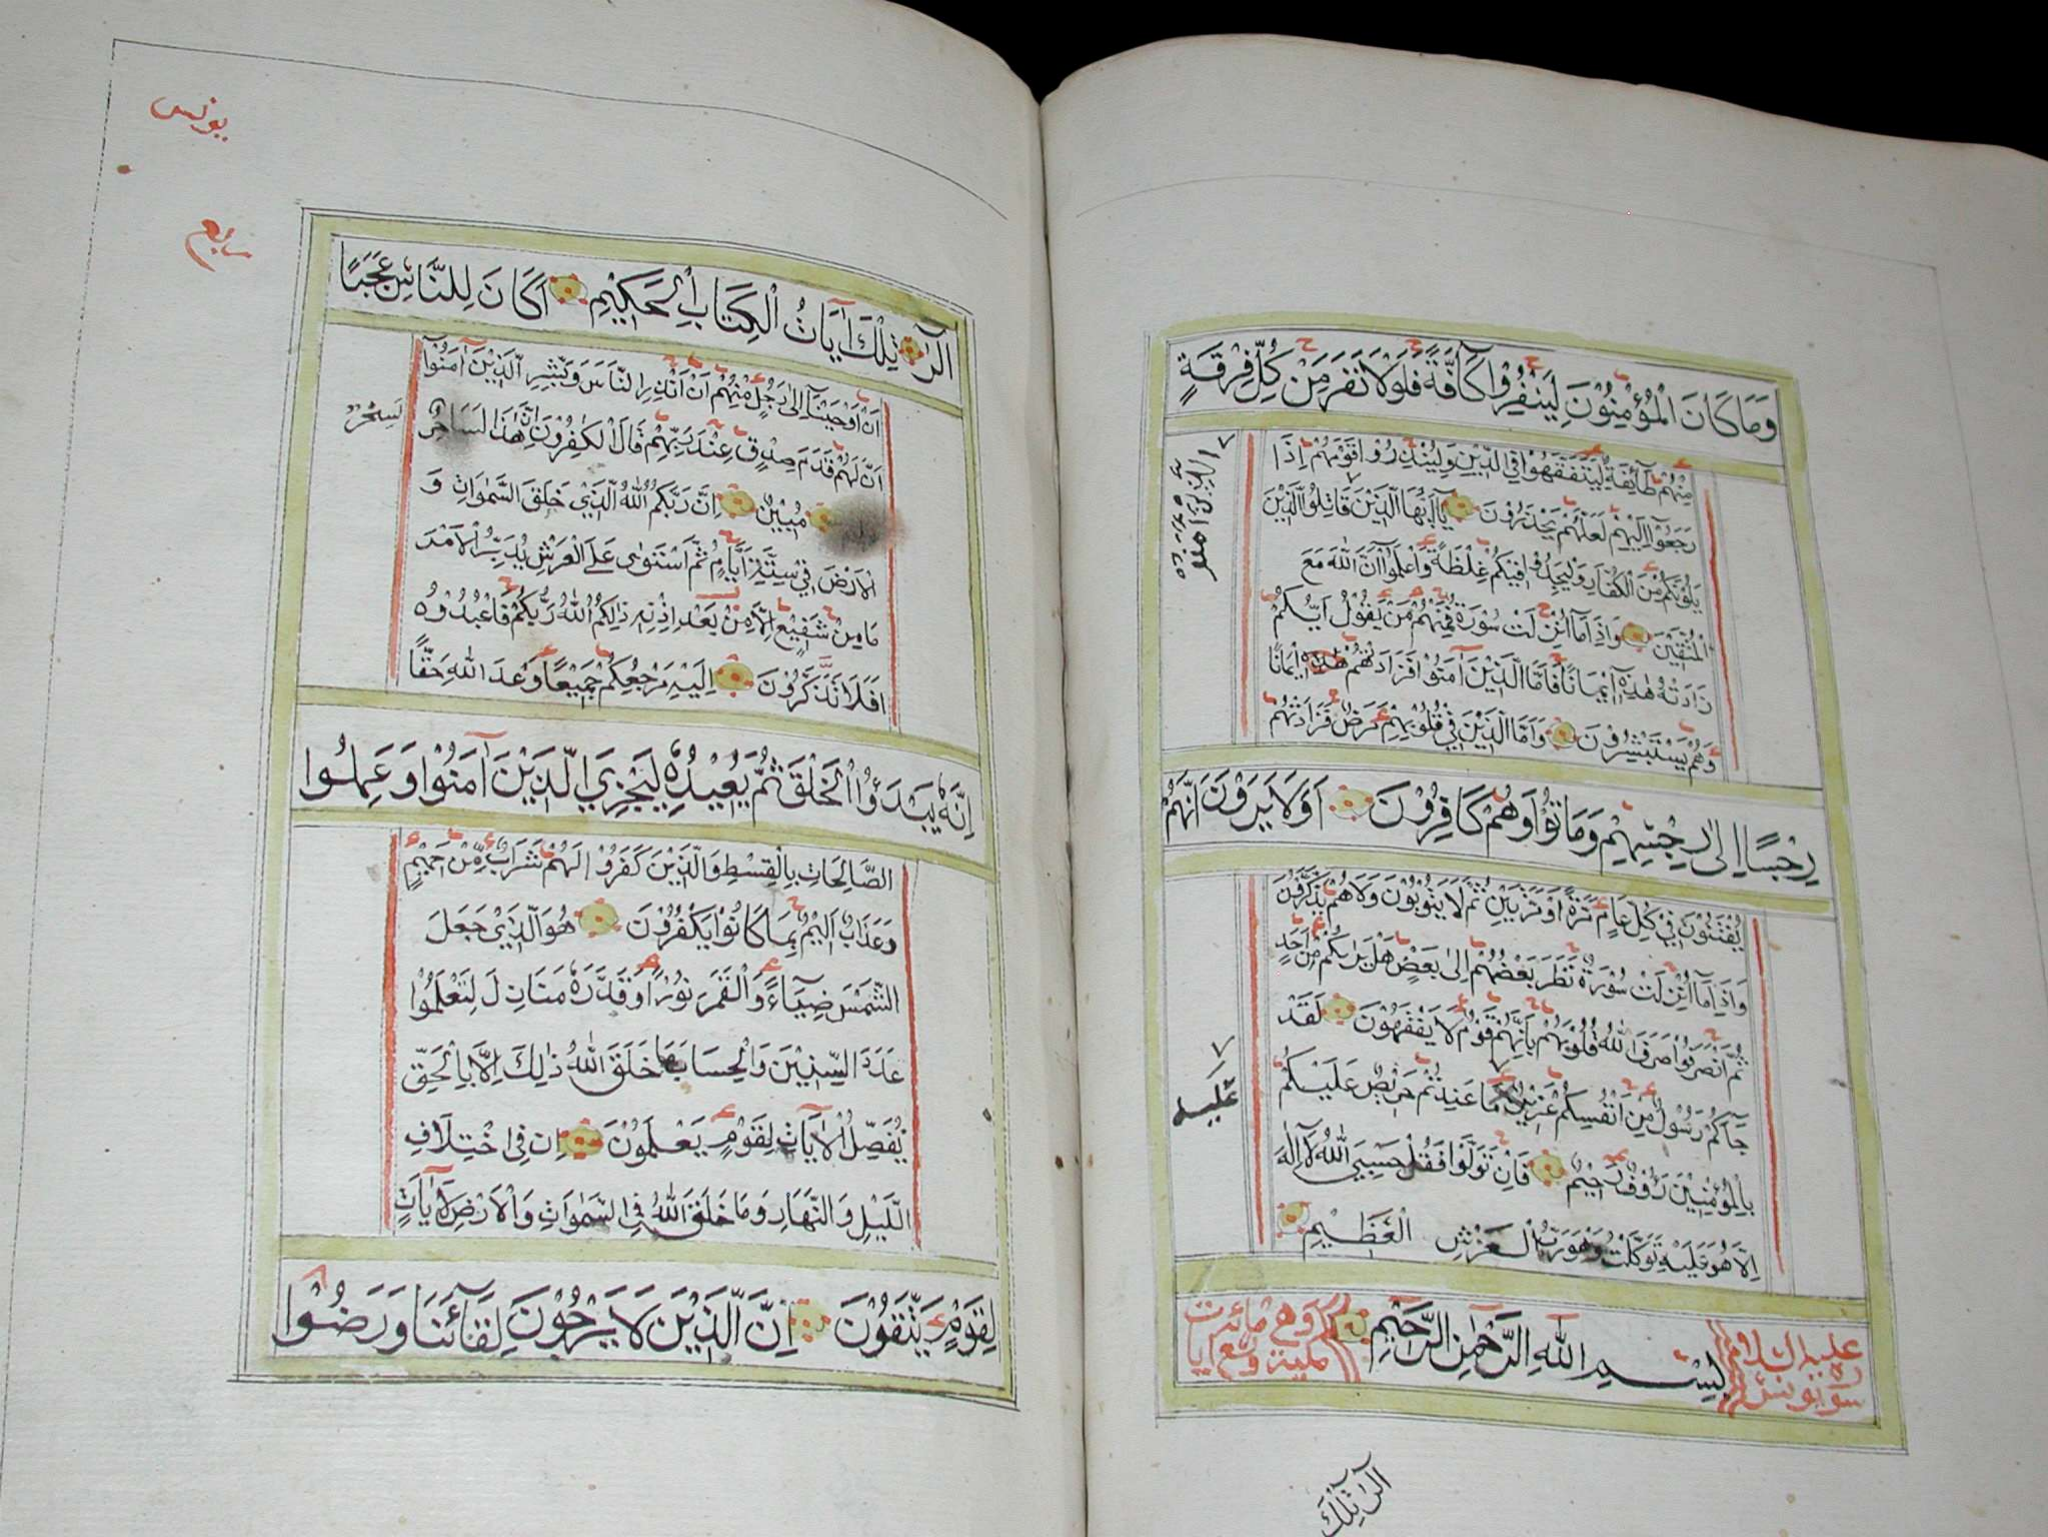 وَمَا كَانَ الْمُؤْمِنُونَ لِيَنْفِرُوا كَآفَّةً فَلَوْلَا نَفَرَ مِنْ كُلِّ فِرْقَةٍ
مِنْهُمْ طَآئِفَةٌ لِيَتَفَقَّهُوا فِي الدِّيْنِ وَلِيُنْذِرُوا قَوْمَهُمْ إِذَا
رَجَعُوْآ اِلَيْهِمْ لَعَلَّهُمْ يَحْذَرُوْنَ يَآ اَيُّهَا الَّذِيْنَ قَاتِلُوا الَّذِيْنَ
يَلُوْنَكُمْ مِنَ الْكُفَّارِ وَلْيَجِدُوْا فِيْكُمْ غِلْظَةً وَاعْلَمُوْآ اَنَّ اللّٰهَ مَعَ
الْمُتَّقِيْنَ وَاِذَا مَآ اُنْزِلَتْ سُوْرَةٌ فَمِنْهُمْ مَنْ يَقُوْلُ اَيُّكُمْ
زَادَتْهُ هٰذِهٖ اِيْمَانًا فَاَمَّا الَّذِيْنَ اٰمَنُوْا فَزَادَتْهُمْ هٰذِهٖ اِيْمَانًا
وَهُمْ يَسْتَبْشِرُوْنَ وَاَمَّا الَّذِيْنَ فِيْ قُلُوْبِهِمْ مَرَضٌ فَزَادَتْهُمْ
رِجْسًا اِلٰى رِجْسِهِمْ وَمَاتُوْا وَهُمْ كَافِرُوْنَ اَوَلَا يَرَوْنَ اَنَّهُمْ
يُفْتَنُوْنَ فِيْ كُلِّ عَامٍ مَرَّةً اَوْ مَرَّتَيْنِ ثُمَّ لَا يَتُوْبُوْنَ وَلَا هُمْ يَذَّكَّرُوْنَ
وَاِذَا مَآ اُنْزِلَتْ سُوْرَةٌ نَظَرَ بَعْضُهُمْ اِلٰى بَعْضٍ هَلْ يَرٰىكُمْ مِنْ اَحَدٍ
ثُمَّ انْصَرَفُوْا صَرَفَ اللّٰهُ قُلُوْبَهُمْ بِاَنَّهُمْ قَوْمٌ لَا يَفْقَهُوْنَ لَقَدْ
جَآءَكُمْ رَسُوْلٌ مِنْ اَنْفُسِكُمْ عَزِيْزٌ مَا عَنِتُّمْ حَرِيْصٌ عَلَيْكُمْ
بِالْمُؤْمِنِيْنَ رَؤُوْفٌ رَحِيْمٌ فَاِنْ تَوَلَّوْا فَقُلْ حَسْبِيَ اللّٰهُ لَآ اِلٰهَ
اِلَّا هُوَ عَلَيْهِ تَوَكَّلْتُ وَهُوَ رَبُّ الْعَرْشِ الْعَظِيْمِ
سورة يونس عليه السلام
بِسْمِ اللّٰهِ الرَّحْمٰنِ الرَّحِيْمِ
عَلَيْهِ
الٓرٰ تِلْكَ
يونس
الٓرٰ تِلْكَ اٰيَاتُ الْكِتَابِ الْحَكِيْمِ اَكَانَ لِلنَّاسِ عَجَبًا
اَنْ اَوْحَيْنَآ اِلٰى رَجُلٍ مِنْهُمْ اَنْ اَنْذِرِ النَّاسَ وَبَشِّرِ الَّذِيْنَ اٰمَنُوْآ
اَنَّ لَهُمْ قَدَمَ صِدْقٍ عِنْدَ رَبِّهِمْ قَالَ الْكٰفِرُوْنَ اِنَّ هٰذَا لَسَاحِرٌ
لَسِحْرٌ
مُبِيْنٌ اِنَّ رَبَّكُمُ اللّٰهُ الَّذِيْ خَلَقَ السَّمٰوَاتِ وَ
الْاَرْضَ فِيْ سِتَّةِ اَيَّامٍ ثُمَّ اسْتَوٰى عَلَى الْعَرْشِ يُدَبِّرُ الْاَمْرَ
مَا مِنْ شَفِيْعٍ اِلَّا مِنْ بَعْدِ اِذْنِهٖ ذٰلِكُمُ اللّٰهُ رَبُّكُمْ فَاعْبُدُوْهُ
اَفَلَا تَذَكَّرُوْنَ اِلَيْهِ مَرْجِعُكُمْ جَمِيْعًا وَعْدَ اللّٰهِ حَقًّا
اِنَّهٗ يَبْدَؤُا الْخَلْقَ ثُمَّ يُعِيْدُهٗ لِيَجْزِيَ الَّذِيْنَ اٰمَنُوْا وَعَمِلُوا
الصَّالِحَاتِ بِالْقِسْطِ وَالَّذِيْنَ كَفَرُوْا لَهُمْ شَرَابٌ مِنْ حَمِيْمٍ
وَعَذَابٌ اَلِيْمٌ بِمَا كَانُوْا يَكْفُرُوْنَ هُوَ الَّذِيْ جَعَلَ
الشَّمْسَ ضِيَآءً وَالْقَمَرَ نُوْرًا وَقَدَّرَهٗ مَنَازِلَ لِتَعْلَمُوْا
عَدَدَ السِّنِيْنَ وَالْحِسَابَ مَا خَلَقَ اللّٰهُ ذٰلِكَ اِلَّا بِالْحَقِّ
يُفَصِّلُ الْاٰيَاتِ لِقَوْمٍ يَعْلَمُوْنَ اِنَّ فِي اخْتِلَافِ
اللَّيْلِ وَالنَّهَارِ وَمَا خَلَقَ اللّٰهُ فِي السَّمٰوَاتِ وَالْاَرْضِ لَاٰيَاتٍ
لِقَوْمٍ يَتَّقُوْنَ اِنَّ الَّذِيْنَ لَا يَرْجُوْنَ لِقَآئَنَا وَرَضُوْا